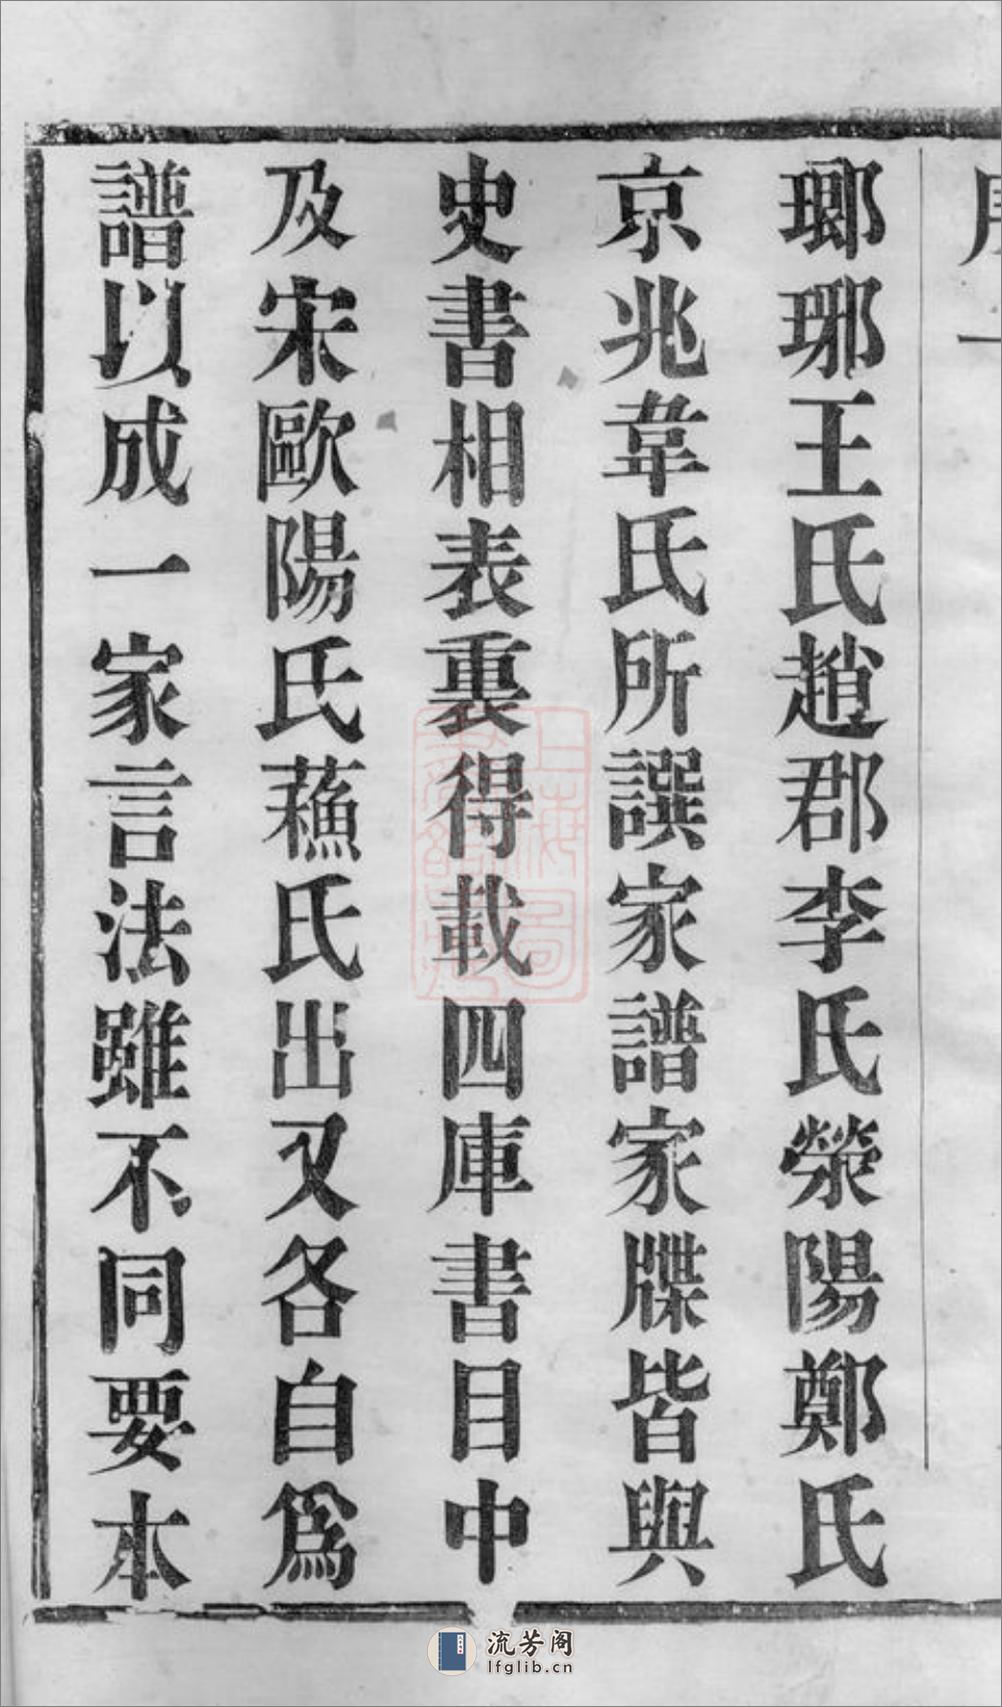 瑯琊王氏趙郡李氏滎陽鄭氏
京兆韋氏所譔家譜家牒皆與
史書相表裏得載四庫書目中
及宋歐陽氏蘓氏出又各自爲
譜以成一家言法雖不同要本
流芳阁
lfglib.cn